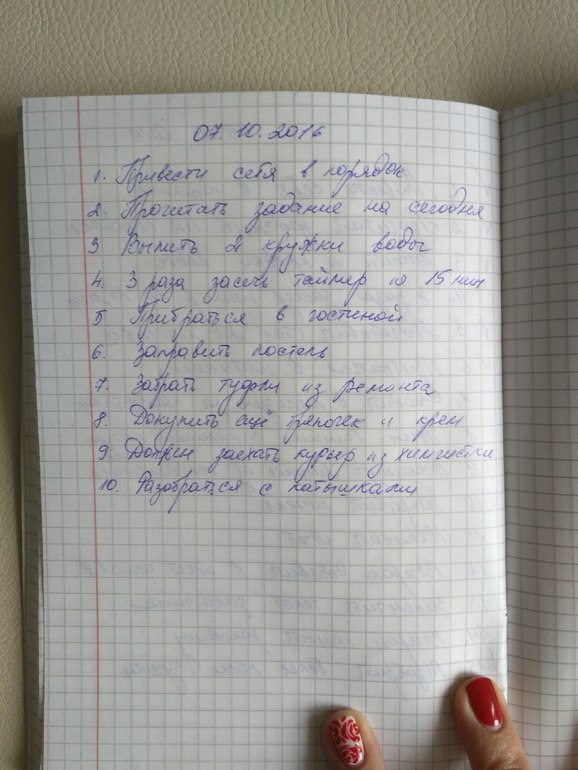 07.10.2016
1. Привести себя в порядок
2. Прочитать задание на сегодня
3 Выпить 2 кружки воды
4. 3 раза засечь таймер по 15 мин
5. Прибраться в гостиной
6. Заправить постель
7. Забрать туфли из ремонта
8. Докупить ещё тряпочек и крем
9. Должен заехать курьер из химчистки
10. Разобраться с катышками